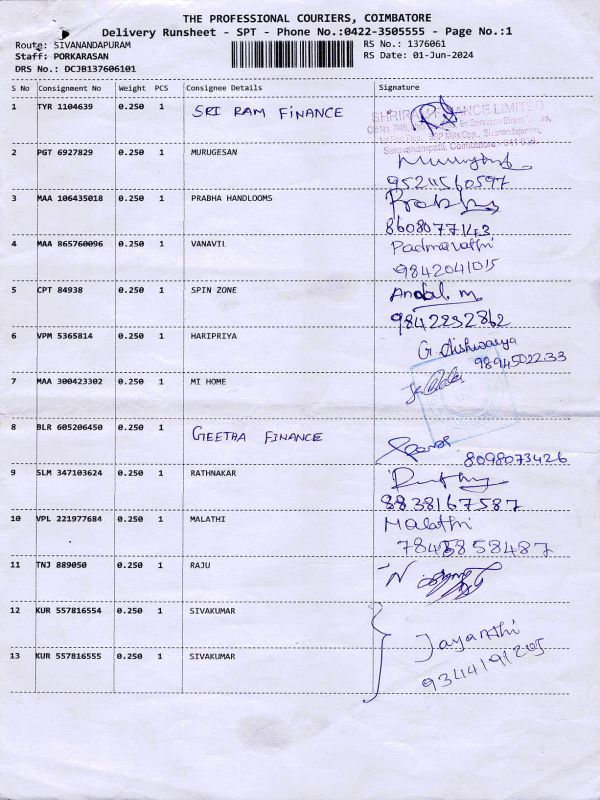 THE PROFESSIONAL COURIERS, COIMBATORE
Delivery Runsheet - SPT - Phone No.:0422-3505555 - Page No.:1
Route: SIVANANDAPURAM
Staff: PORKARASAN
DRS No.: DCJB137606101
RS No.: 1376061
RS Date: 01-Jun-2024
S No Consignment No Weight PCS Consignee Details Signature
1 TYR 1104639 0.250 1 SRI RAM FINANCE
SHRIRAM FINANCE LIMITED
2 PGT 6927829 0.250 1 MURUGESAN
3 MAA 106435018 0.250 1 PRABHA HANDLOOMS
4 MAA 865760096 0.250 1 VANAVIL Padmavathi
9842041015
5 CPT 84938 0.250 1 SPIN ZONE Andal. m
9842232862
6 VPM 5365814 0.250 1 HARIPRIYA G. Aishwarya
9894502233
7 MAA 300423302 0.250 1 MI HOME
8 BLR 605206450 0.250 1 GEETHA FINANCE
8098073426
9 SLM 347103624 0.250 1 RATHNAKAR
8838167587
10 VPL 221977684 0.250 1 MALATHI Malathi
11 TNJ 889050 0.250 1 RAJU
12 KUR 557816554 0.250 1 SIVAKUMAR
Jayanthi
9344191205
13 KUR 557816555 0.250 1 SIVAKUMAR